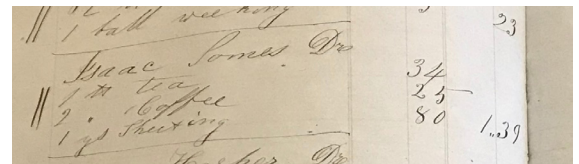 1 ball
23
Isaac Somes Dr
1 lb tea 34
2 " Coffee 25
1 yd Sheeting 80 1.39
Dr